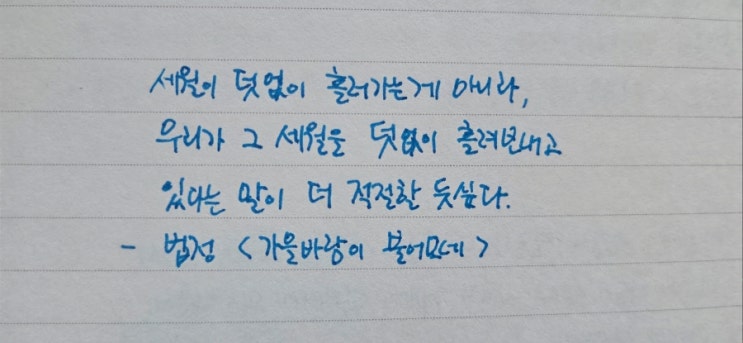 세월이 덧없이 흘러가는게 아니라,
우리가 그 세월을 덧없이 흘려보내고
있다는 말이 더 적절할 듯싶다.
- 법정 <가을바람이 불어오네>